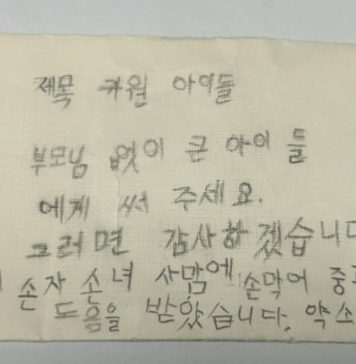 제목 카월 아이들
부모님 없이 큰 아이 들
에게 써 주세요.
그러면 감사하겠습니다
손자 손녀 사맘에 손막어 중
도음을 받았습니다. 약소